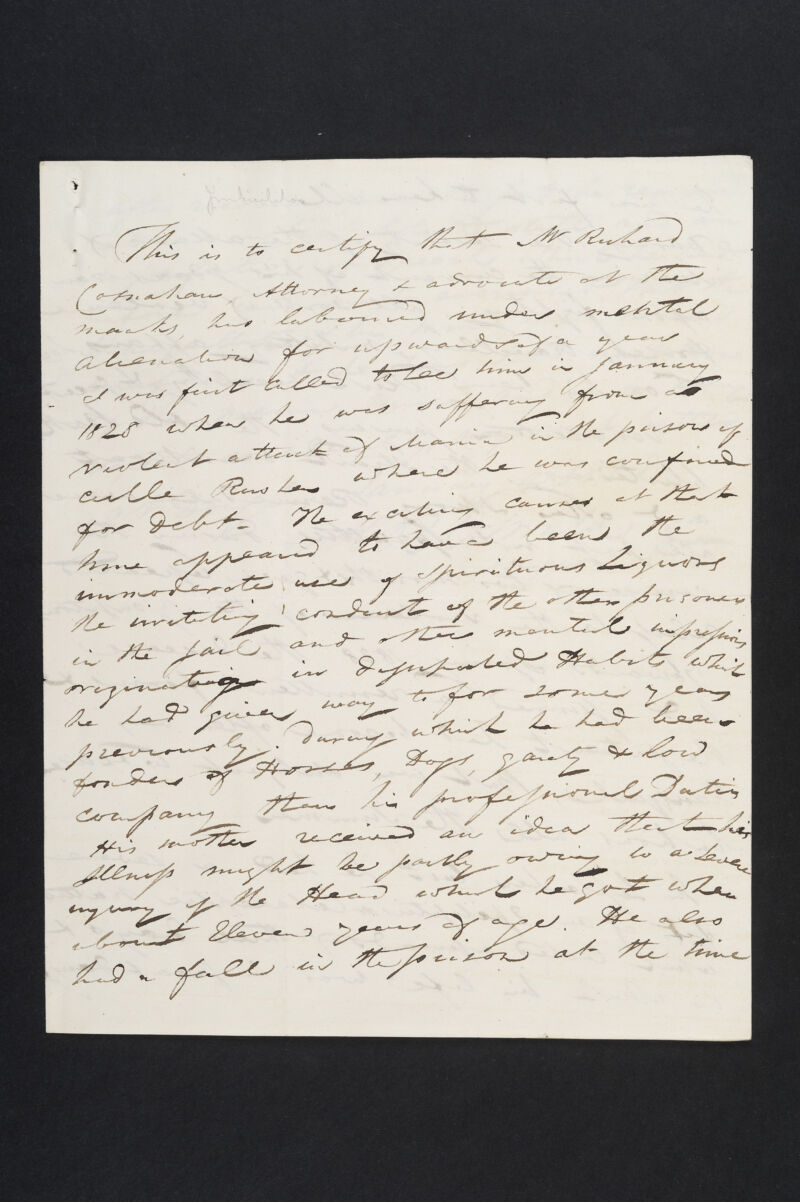 This is to certify that Mr Richard
Cosnahan, Attorney & advocate at the
maaks, has laboured under mental
alienation for upwards of a year
I was first called to see him in January
1828 when he was suffering from a
violent attack of Mania in the prison of
castle Rushen where he was confined
for Debt - The exciting causes at that
time appeared to have been the
immoderate use of Spirituous Liquors
the irritating conduct of the other prisoners
in the Jail and other mental impressions
originating in dissipated Habits which
he had given way to for some years
previously. During which he had been
fonder of Horses, Dogs, gaiety & low
company than his professional Duties
His mother received an idea that his
Illness might be partly owing to a severe
injury of the Head which he got when
about Eleven years of age. He also
had a fall in the prison at the time